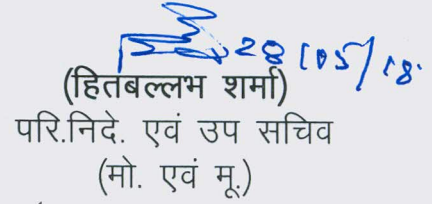 28/05/18
(हितबल्लभ शर्मा)
परि.निदे. एवं उप सचिव
(मो. एवं मू.)